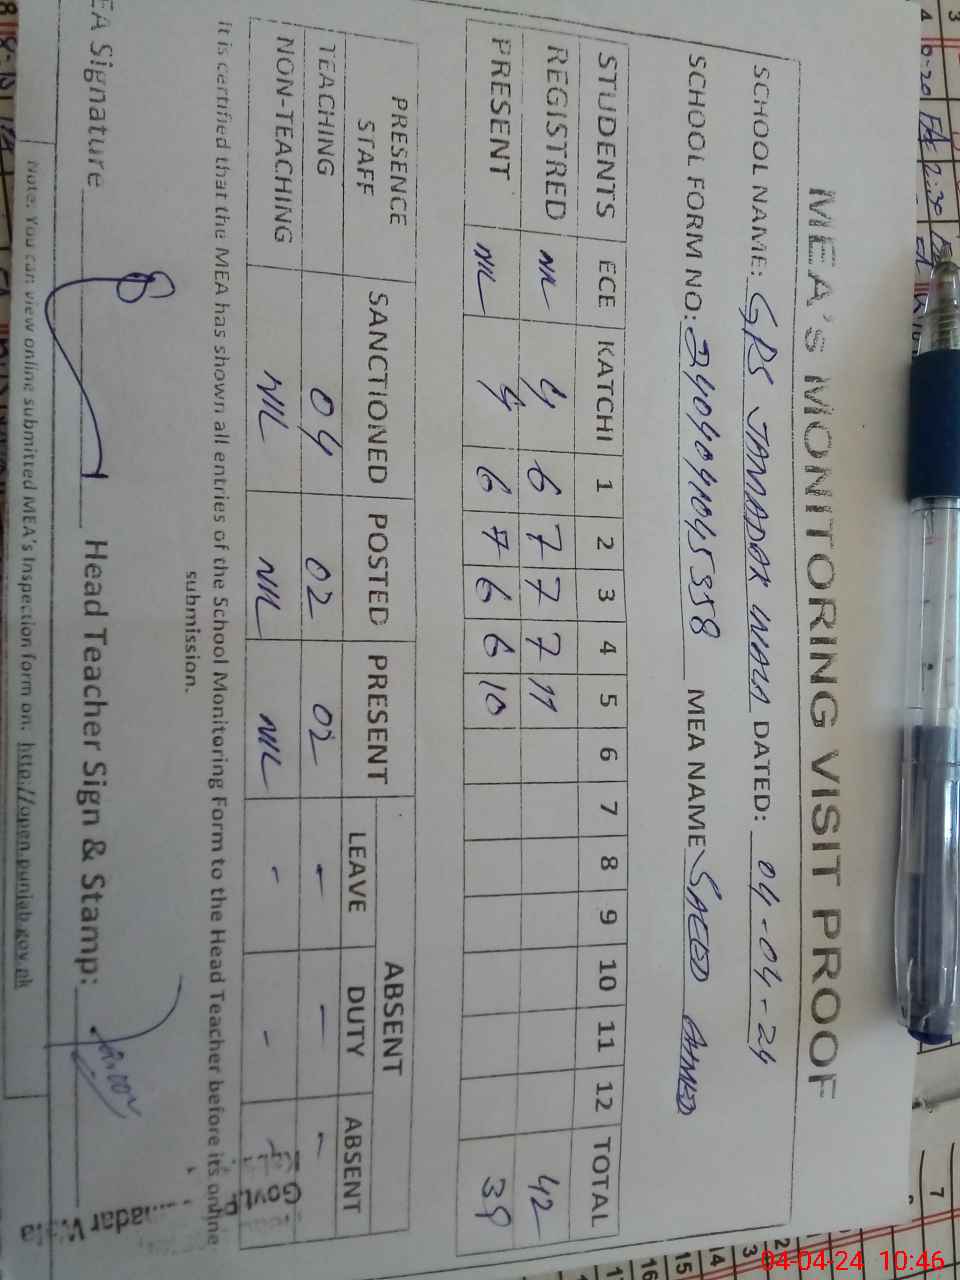 MEA's MONITORING VISIT PROOF
SCHOOL NAME: GPS JAMADAR WALA DATED: 04-04-24
SCHOOL FORM NO: 2409091045358 MEA NAME SAEED AHMED
STUDENTS ECE KATCHI 1 2 3 4 5 6 7 8 9 10 11 12 TOTAL
REGISTRED NIL 4 6 7 7 7 11 42
PRESENT NIL 4 6 7 6 6 10 39
PRESENCE STAFF SANCTIONED POSTED PRESENT ABSENT
LEAVE DUTY ABSENT
TEACHING 04 02 02 - - -
NON-TEACHING NIL NIL NIL - - -
It is certified that the MEA has shown all entries of the School Monitoring Form to the Head Teacher before its online
submission.
EA Signature Head Teacher Sign & Stamp:
Note: You can view online submitted MEA's Inspection form on: http://open.punjab.gov.pk
Govt. P
04-04-24 10:46